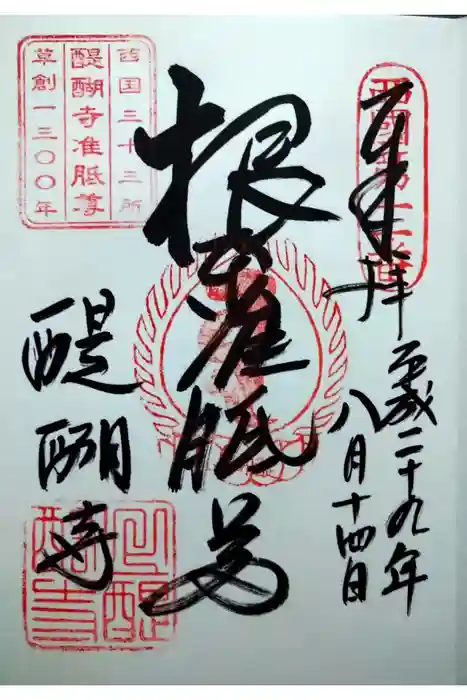 奉拝
西國第十一番
平成二十九年
八月十四日
根本准胝尊
西国三十三所
醍醐寺准胝尊
草創一三〇〇年
醍醐寺